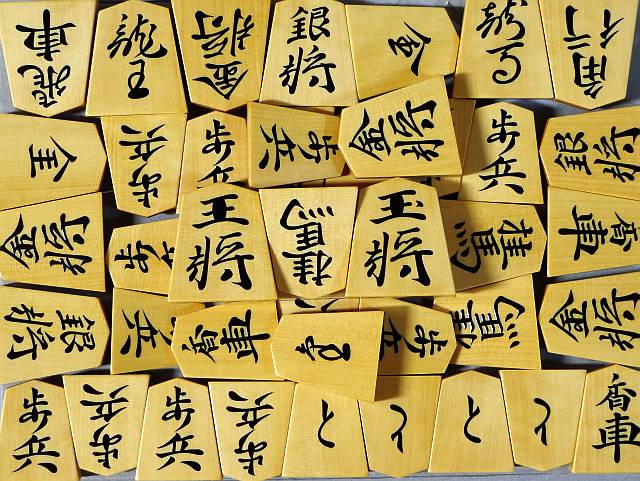 飛車
龍王
金将
銀将
全
龍馬
角行
全
歩兵
歩兵
歩兵
金将
歩兵
銀将
金将
歩
王将
桂馬
玉将
桂馬
香車
銀将
兵
香車
歩兵
桂馬
金将
歩兵
歩兵
歩兵
歩兵
と
と
と
と
香車